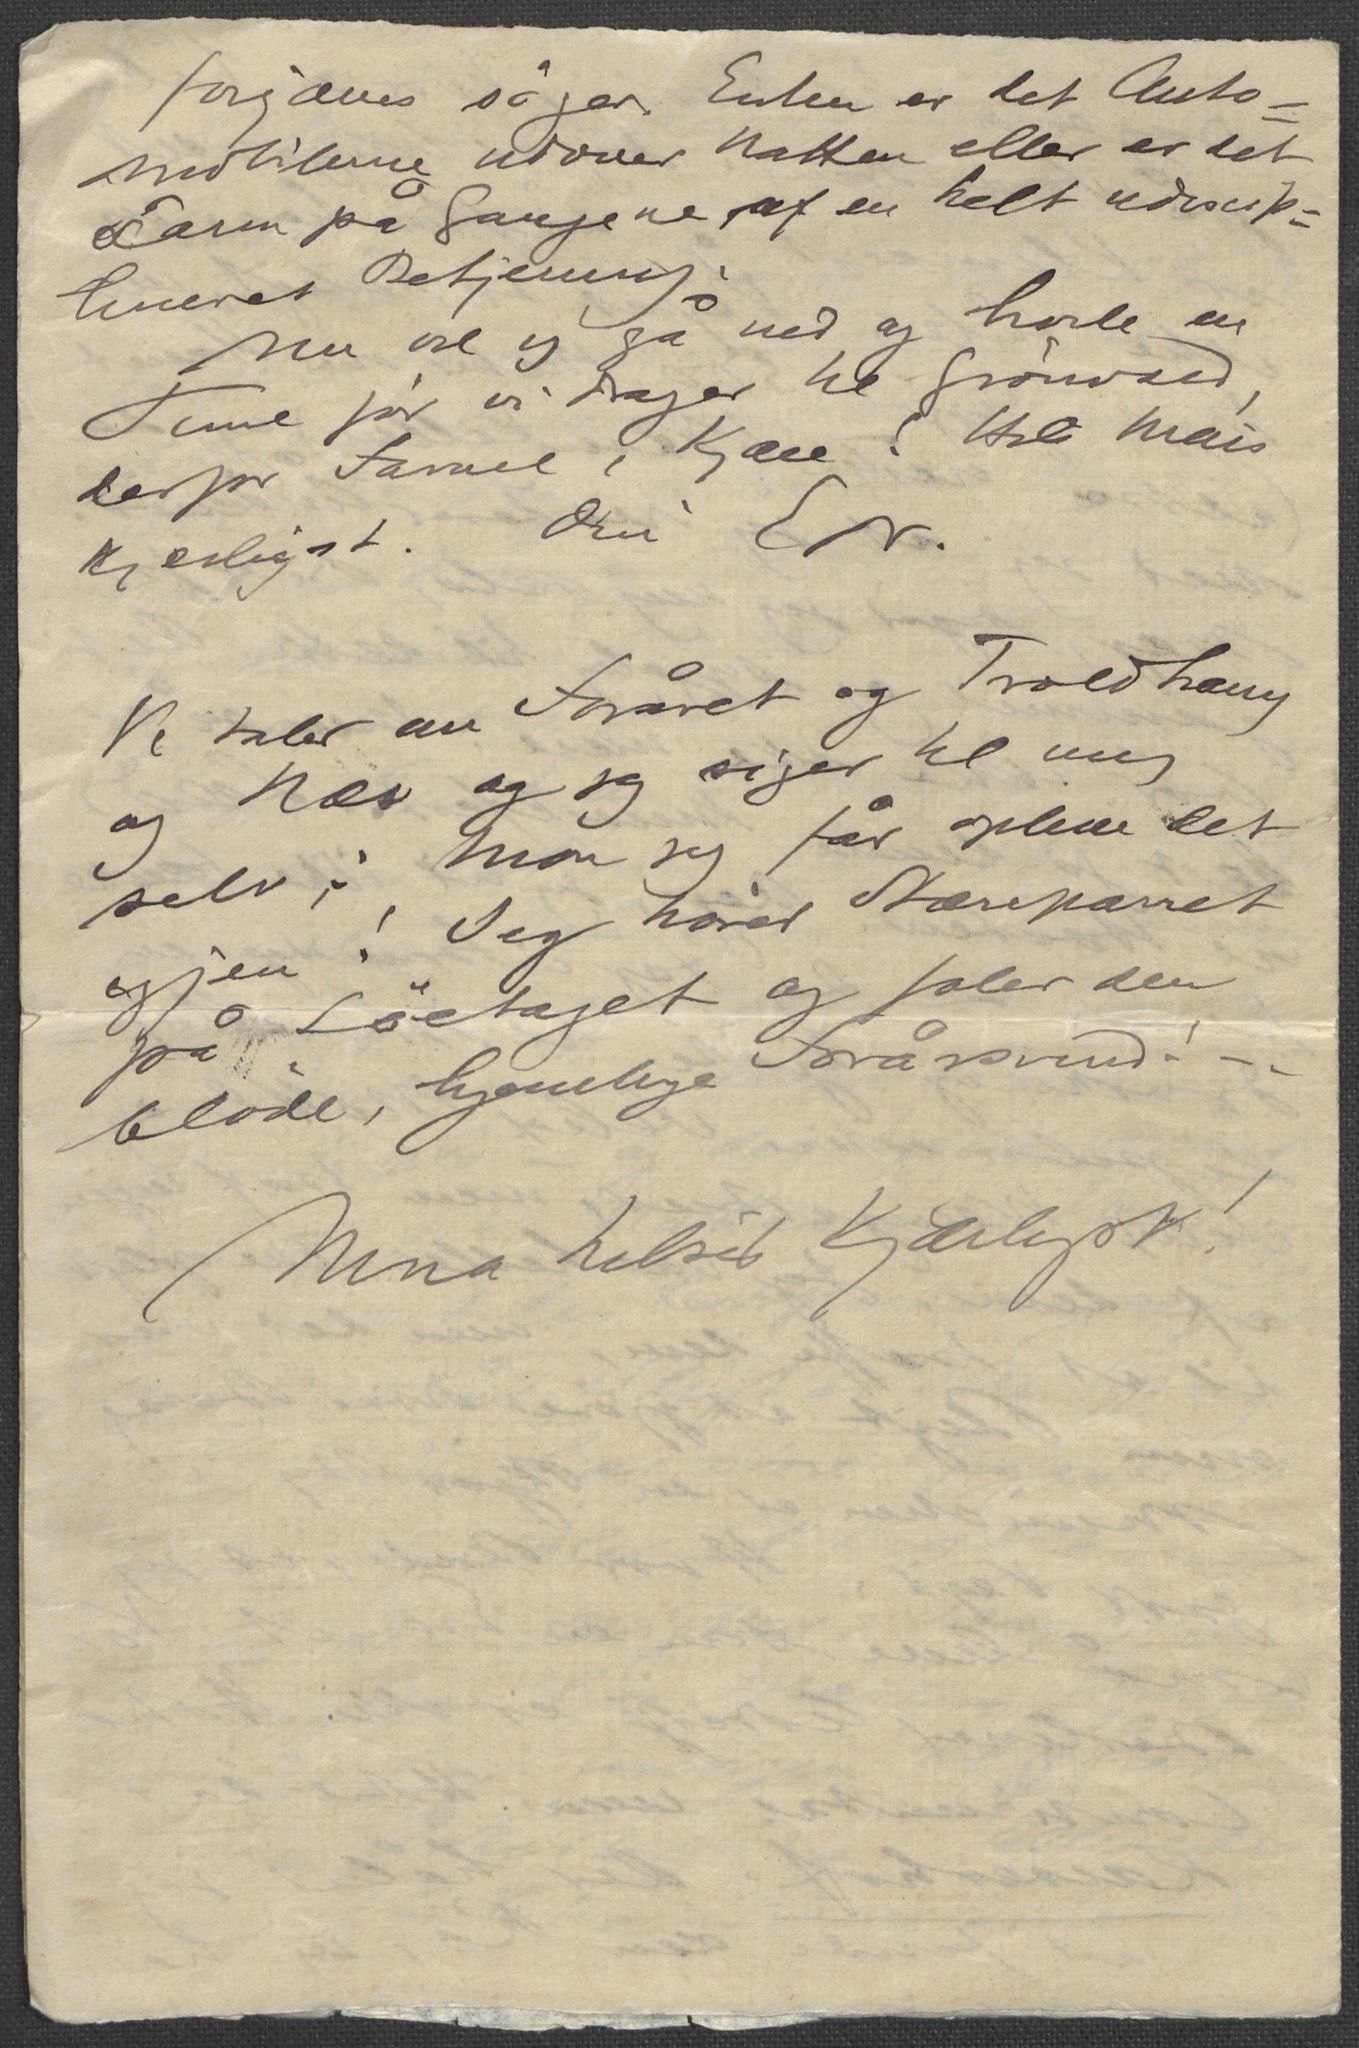 forgjæves søger. Enten er det Auto=
mobilerne udover Natten eller er det
Larm på Gangene af en helt udiscip=
lineret Betjening.
Nu vil jg gå ned og hvile en
Time før vi drager til Grönvold,
derfor Farvel, Kjære! Hils Mais
kjærligst. Din E. G.
Vi taler om Foråret og Troldhaug
og Næs og jeg siger til mig
selv: Mon jeg får opleve det
igjen! Jeg hører Stæreparret
på Låetaget og føler den
bløde, hjemlige Forårsvind! --
Nina hilser Kjærligst!